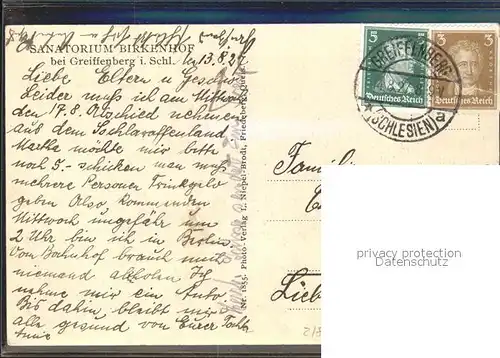 SANATORIUM BIRKENHOF
bei Greiffenberg i. Schl.
13.8.27
Liebe Eltern u Geschw.
Leider muß ich am Mittwoch
den 17.8. Abschied nehmen
aus dem Schlaraffenland
Martha möchte mir bitte
noch 5.- schicken man muß
mehrere Personen Trinkgeld
geben Also kommenden
Mittwoch ungefähr um
2 Uhr bin ich in Berlin
Vom Bahnhof brauch mich
niemand abholen Ich
nehme mir ein Auto
Bis dahin bleibt mir
alle gesund von Eurer Tocht
Nr. 1855. Photo-Verlag L. Niepel-Brodt, Friedeberg
5
Deutsches Reich
3
Deutsches Reich
GREIFFENBERG
(SCHLESIEN)
a
Familie
Lie
privacy protection
www.oldthing.net